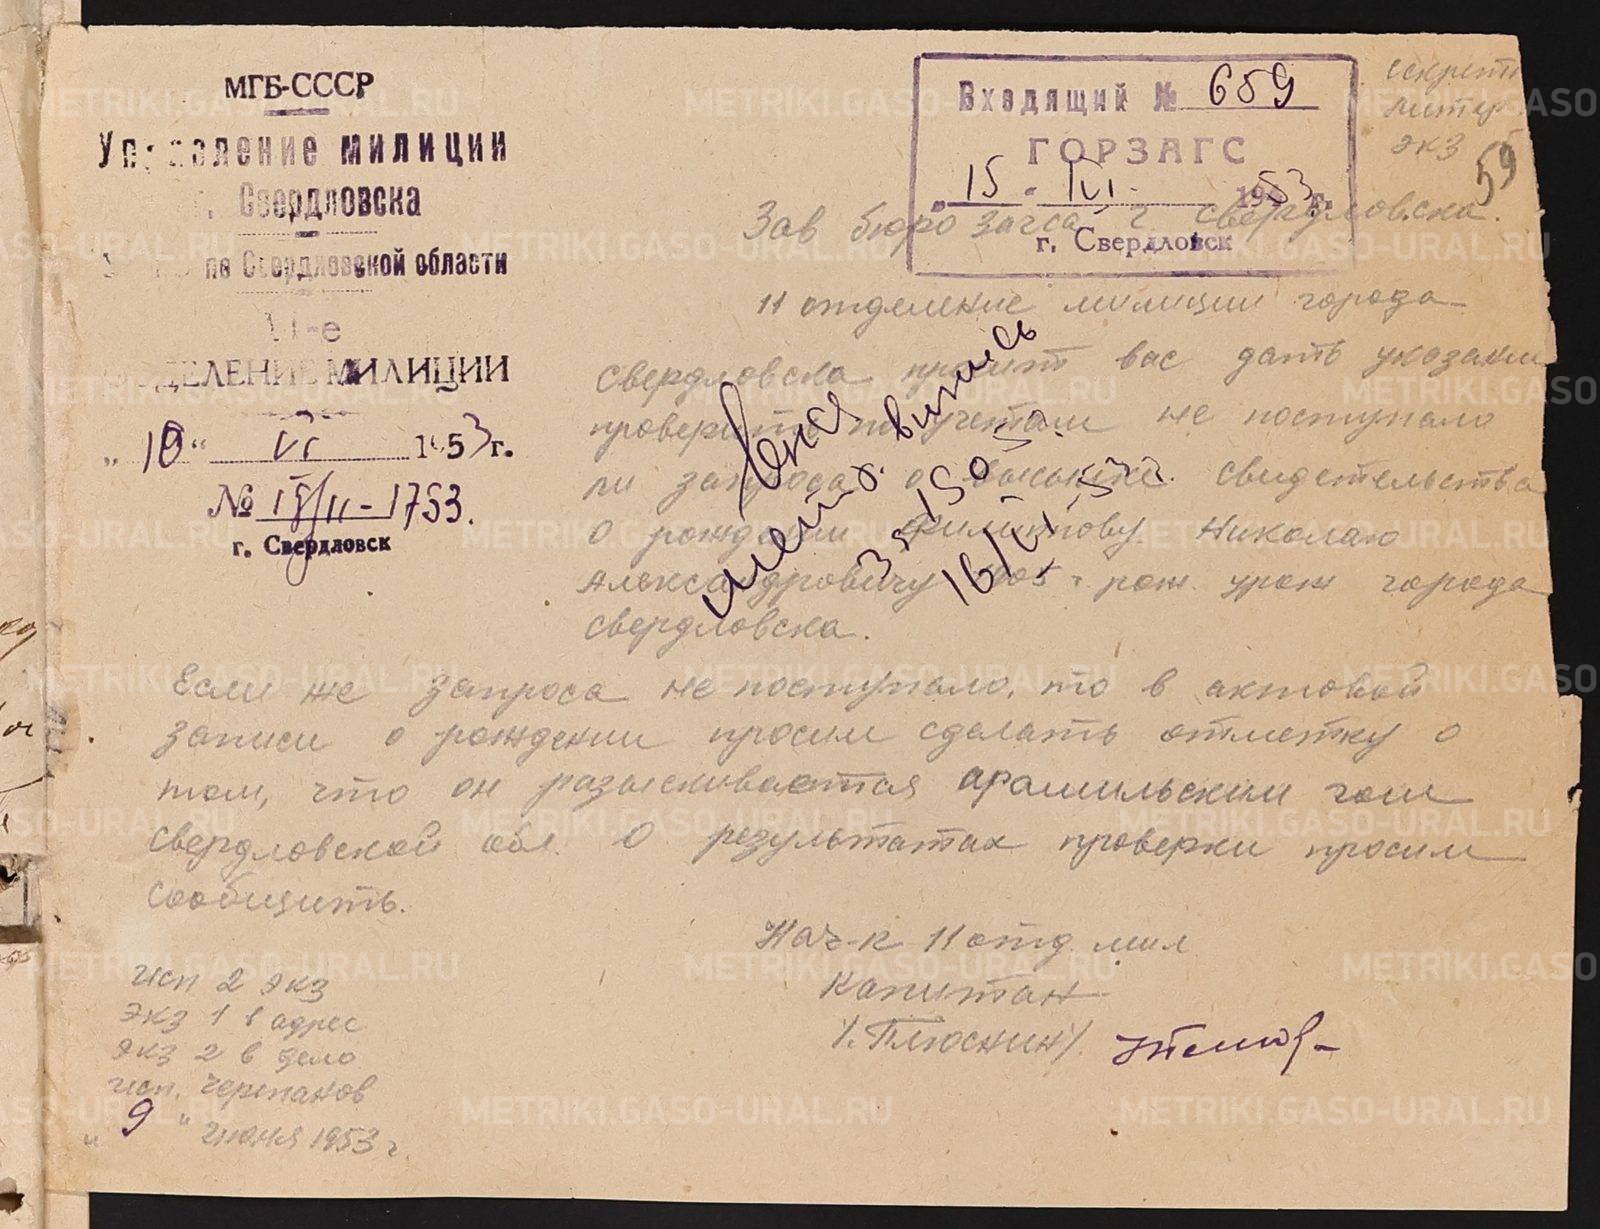 МГБ-СССР
Управление милиции
г. Свердловска
по Свердловской области
11-е
ОТДЕЛЕНИЕ МИЛИЦИИ
„10“ VI 1953 г.
№ 18/11-1753.
г. Свердловск
Входящий № 659
ГОРЗАГС
„15“ VI 1953 г.
г. Свердловск
секретн
литер
экз
59
Зав бюро загса г Свердловска.
11 отделение милиции города
Свердловска просит вас дать указани
проверить по учетам не поступало
ли запроса о высылке свидетельства
о рождении Филиппову Николаю
Александровичу 1905 г рож. урож города
Свердловска.
Если же запроса не поступало, то в актовой
записи о рождении просим сделать отметку о
том, что он разыскивается Арамильским гом
Свердловской обл. О результатах проверки просим
сообщить.
Нач-к 11 отд мил
Капитан
/.Плюснин/.
исп 2 экз
экз 1 в адрес
экз 2 в дело
исп. Черепанов
„9“ июня 1953 г
выпись
16/VI-53
METRIKI.GASO-URAL.RU